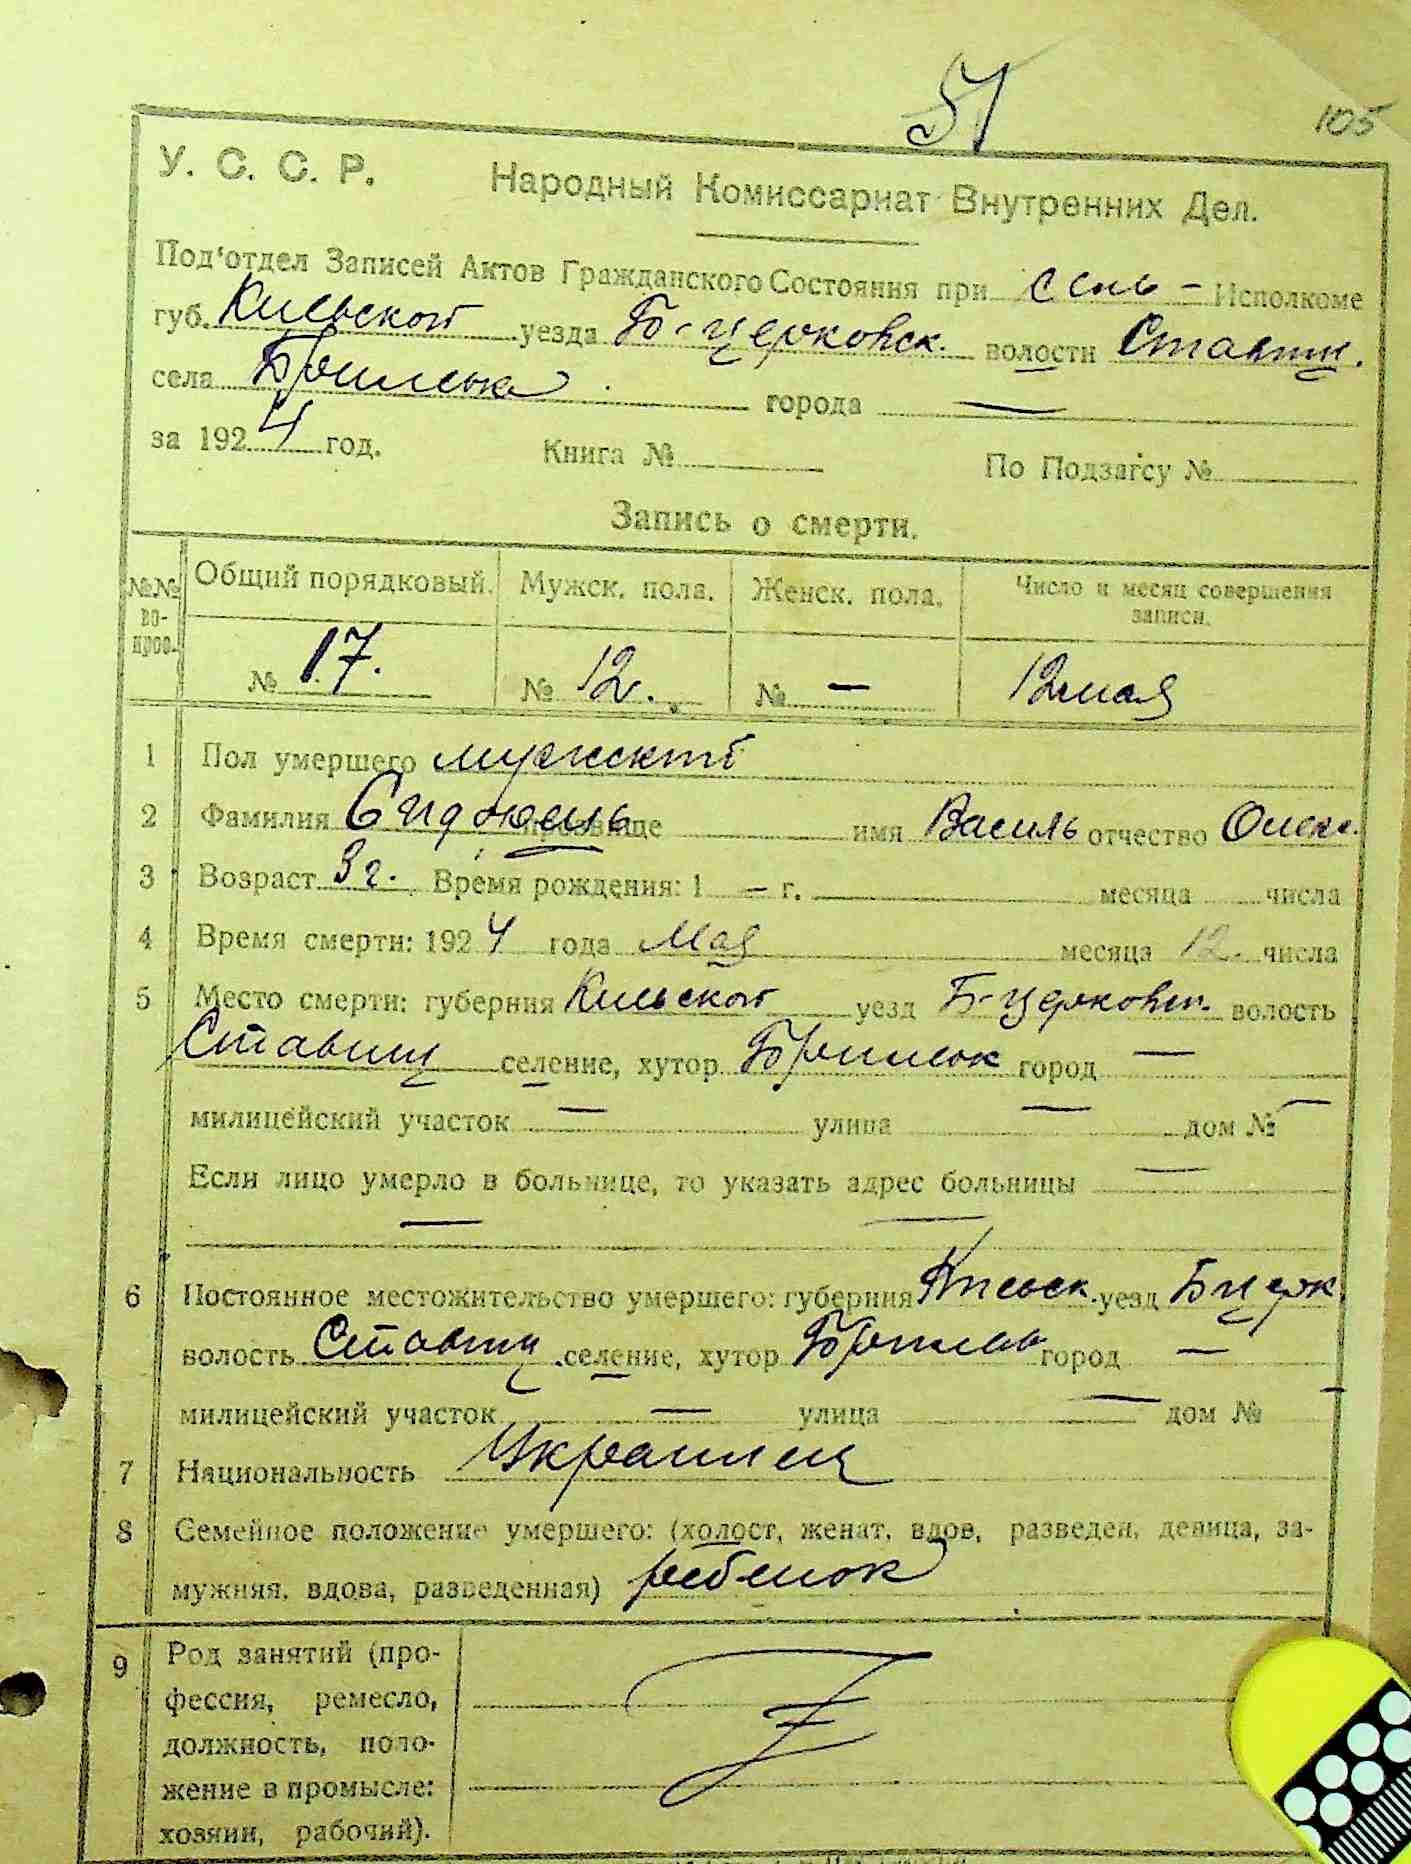 51
105
У. С. С. Р. Народный Комиссариат Внутренних Дел.
Под'отдел Записей Актов Гражданского Состояния при сель - Исполкоме
губ. Киевской уезда Б-церковск. волости Ставищ.
села города —
за 1924 год. Книга № По Подзагсу №
Запись о смерти.
№№ вопрос. Общий порядковый. Мужск. пола. Женск. пола. Число и месяц совершения записи.
№ 17. № 12. № — 12 мая
1 Пол умершего мужский
2 Фамилия прозвище имя Василь отчество Олекс.
3 Возраст 3 г. Время рождения: 1 — г. месяца числа
4 Время смерти: 1924 года Мая месяца 12. числа
5 Место смерти: губерния Киевской уезд Б-церковск. волость
Ставищ селение, хутор город —
милицейский участок — улица — дом № —
Если лицо умерло в больнице, то указать адрес больницы —
— —
6 Постоянное местожительство умершего: губерния Киевск. уезд Б церк.
волость Ставищ селение, хутор город —
милицейский участок — улица — дом №
7 Национальность Украинец
8 Семейное положение умершего: (холост, женат, вдов, разведен, девица, за-
мужняя, вдова, разведенная) ребенок
9 Род занятий (про-
фессия, ремесло,
должность, поло-
жение в промысле:
хозяин, рабочий).